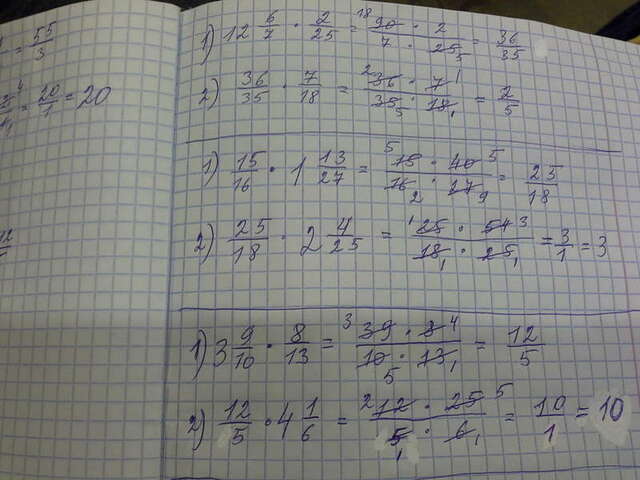 = 55/3
= 20/1 = 20
1) 12 6/7 · 2/25 = 90 · 2 / 7 · 25 = 36/35
2) 36/35 · 7/18 = 36 · 7 / 35 · 18 = 2/5
1) 15/16 · 1 13/27 = 15 · 40 / 16 · 27 = 25/18
2) 25/18 · 2 4/25 = 25 · 54 / 18 · 25 = 3/1 = 3
1) 3 9/10 · 8/13 = 39 · 8 / 10 · 13 = 12/5
2) 12/5 · 4 1/6 = 12 · 25 / 5 · 6 = 10/1 = 10